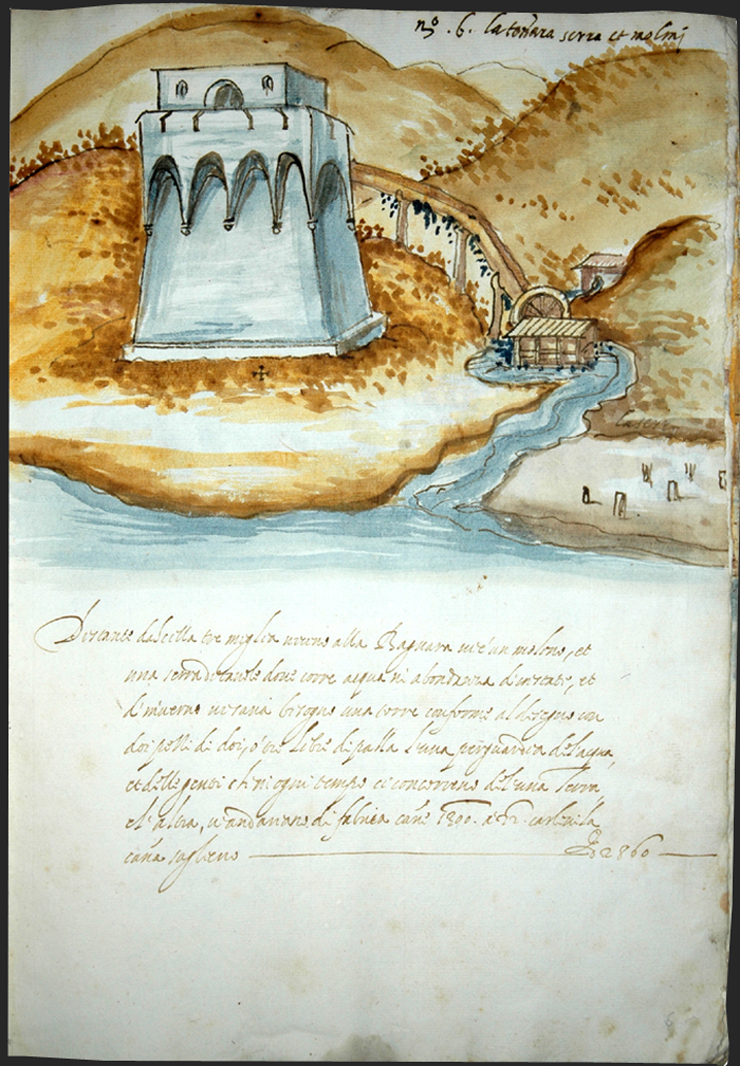 nº. 6. la tonnara serra et molini
la serra
Distante da Scilla tre miglia verso alla Bagnara vi è un molino, et
una serra di tavole dove corre acqua in abondanza d'estate, et
d'inverno vi saria bisogno una torre conforme al disegno con
doi pezzi di doi, o tre libre di palla l'una per guardia del acqua,
et delle genti ch'in ogni tempo ci concorreno del'una Terra
et l'altra, v'andariano di fabrica cane 1390. a carlini la
cana sagliono 2860